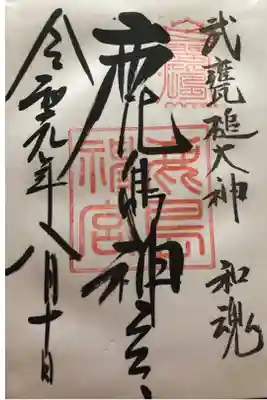 武甕槌大神 和魂
鹿島神宮
令和元年八月十日
鹿島
神宮